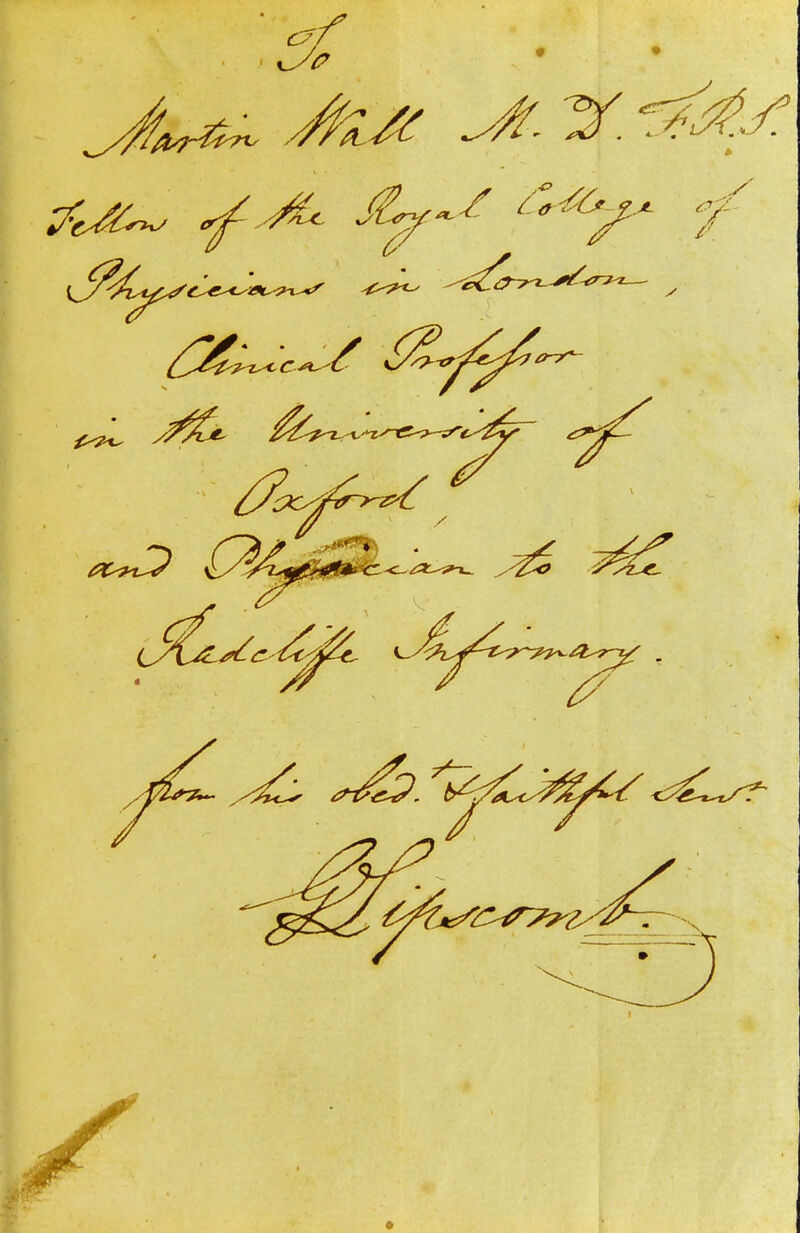 To
Martin Wall M. D. F.R.S.
Fellow of the Royal College of
Physicians in London,
Clinical Professor
in the University of
Oxford,
and Physician to the
Radcliffe Infirmary.
from his obed.t & faithful Serv.t
GLipscomb.